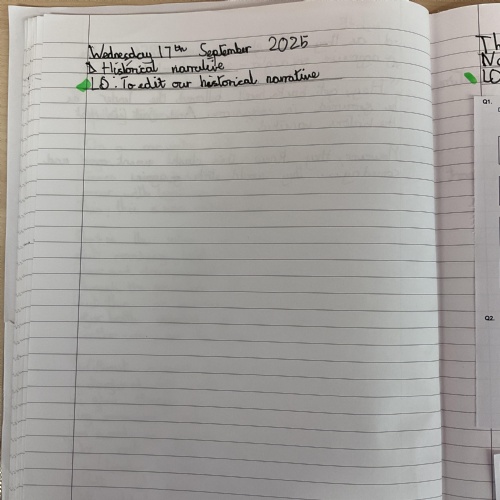 Wednesday 17th September 2025
Historical narrative
LO: To edit our historical narrative
Th
LO
Q1.
Q2.